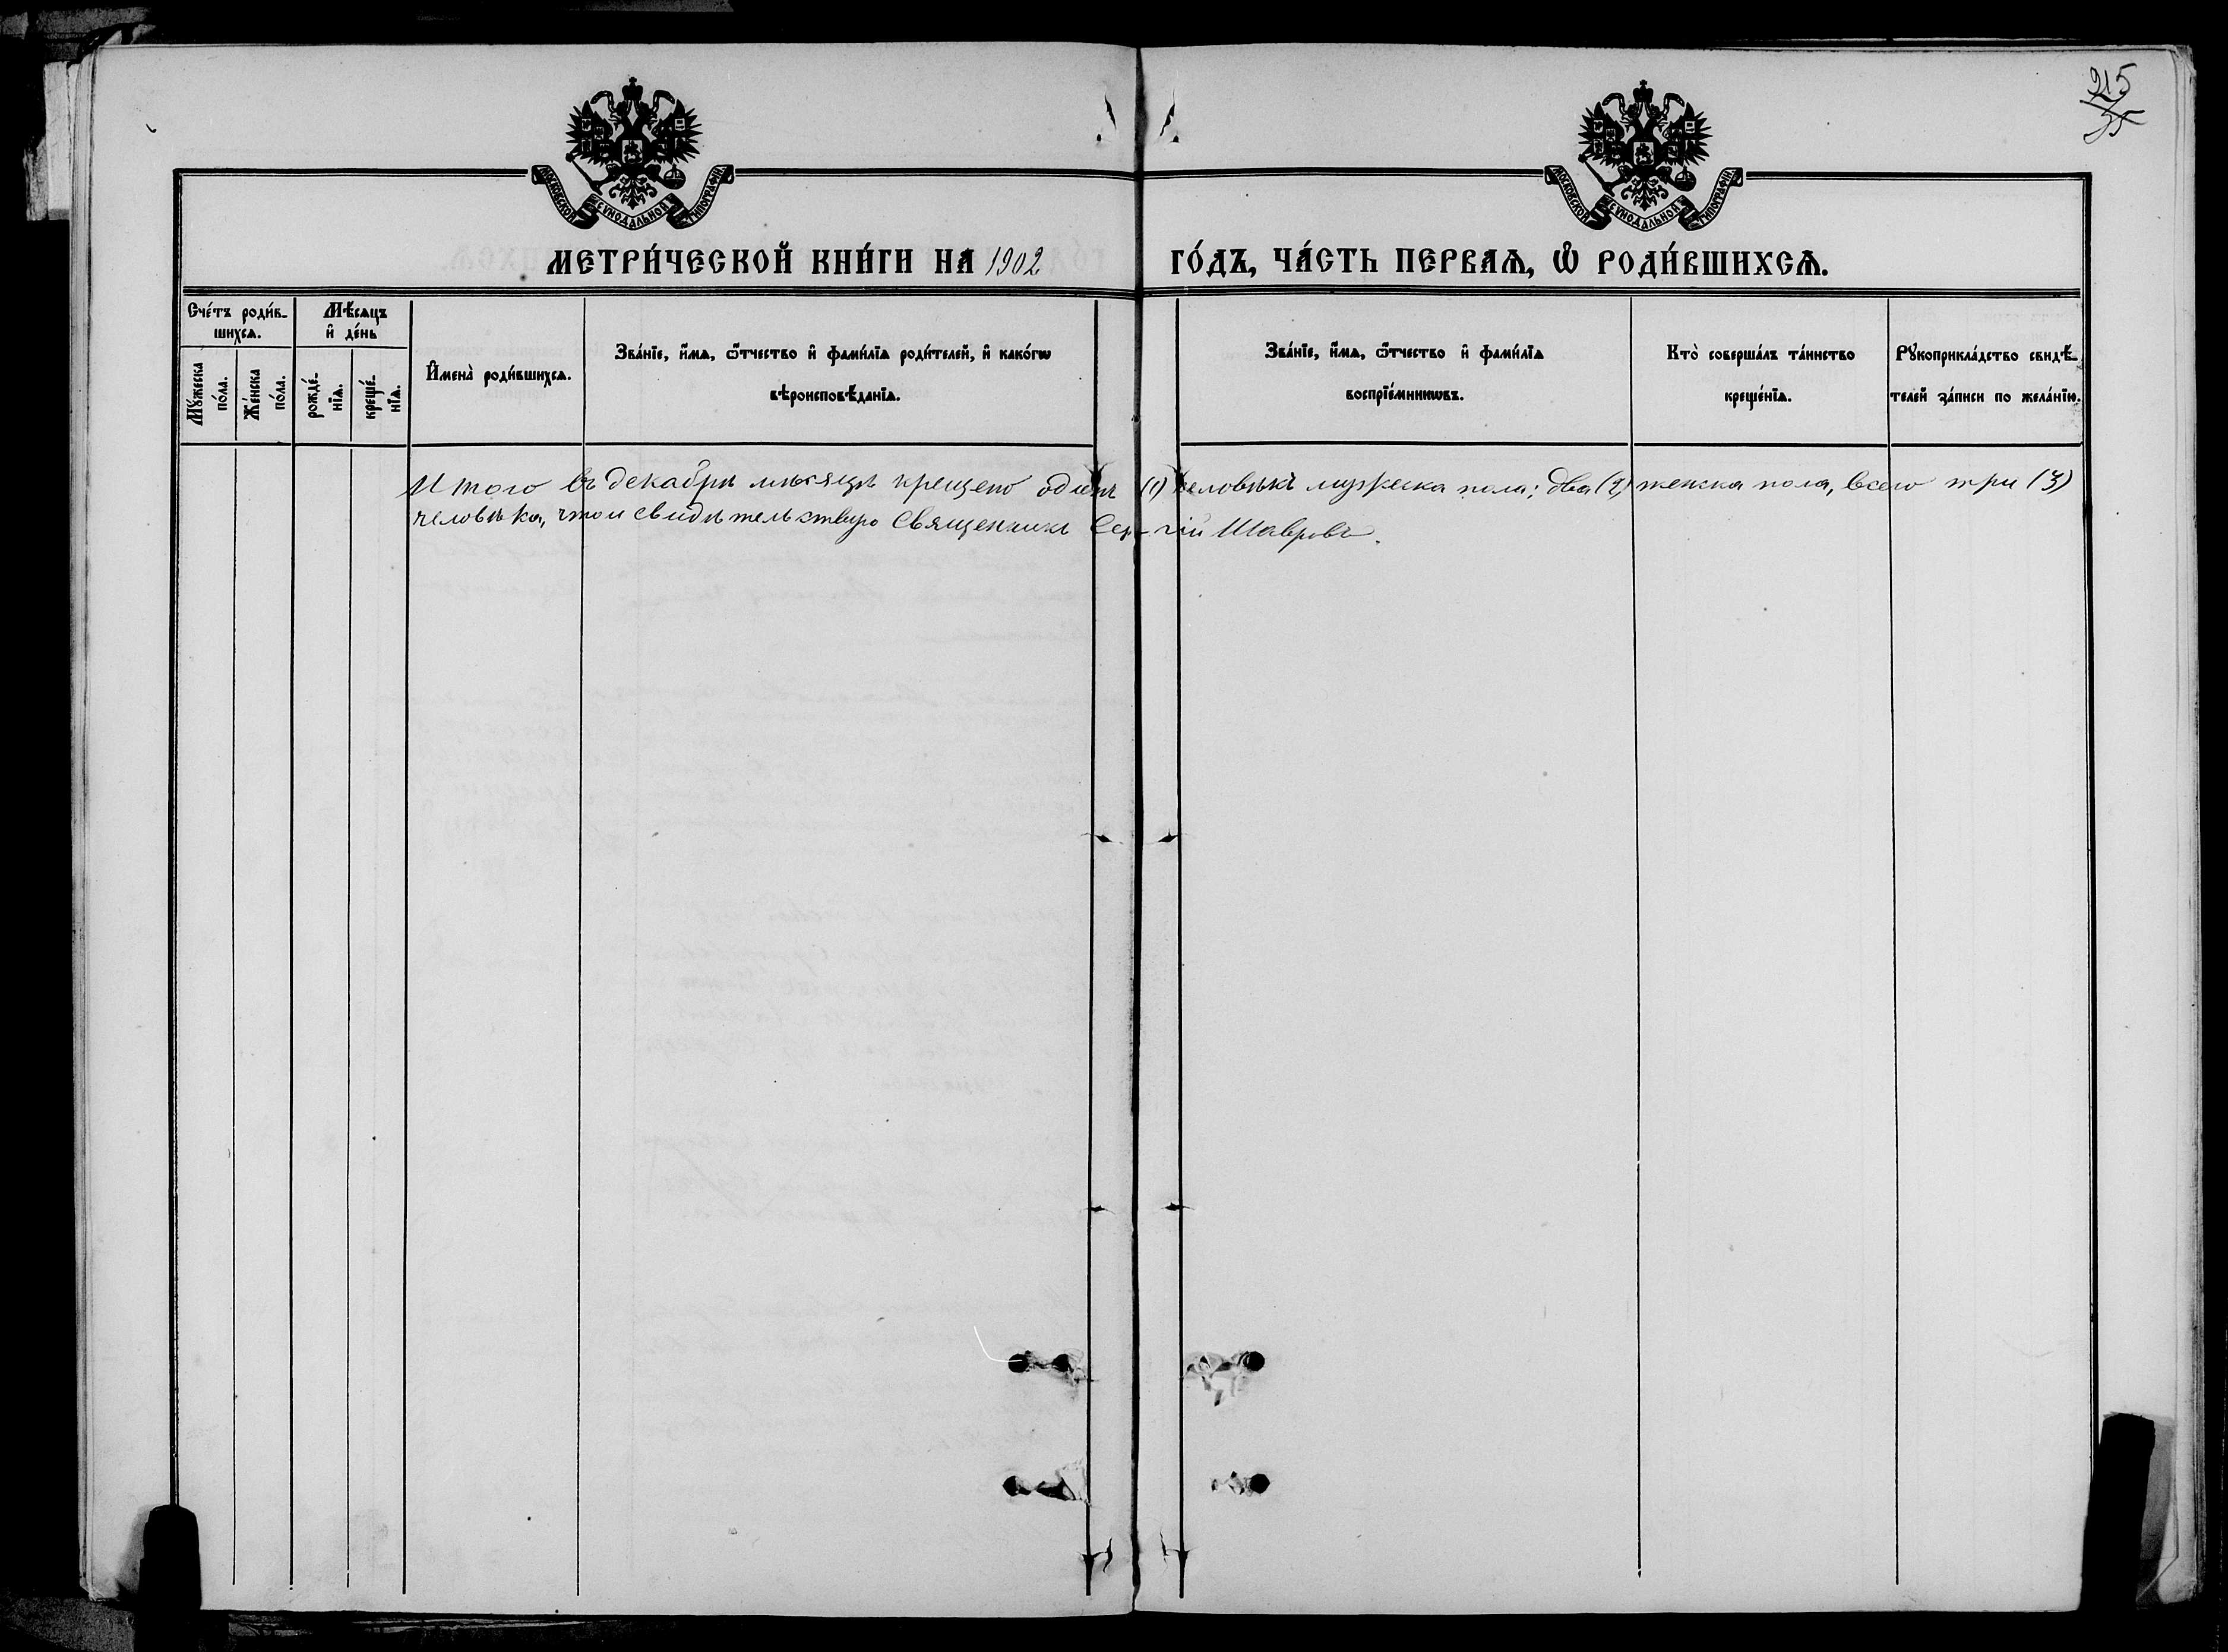 215
35
МОСКОВСКОЙ СУНОДАЛЬНОЙ ТИПОГРАФІИ
МОСКОВСКОЙ СУНОДАЛЬНОЙ ТИПОГРАФІИ
МЕТРИ́ЧЕСКОЙ КНИ́ГИ НА 1902 ГО́ДЪ, ЧА́СТЬ ПЕРВАѦ, Ѽ РОДИ́ВШИХСѦ.
Сче́тъ роди́в-
шихсѧ.
Мꙋ́жеска по́ла.
Же́нска по́ла.
Мѣ́сѧцъ
и҆ де́нь
рожде́-
нїѧ.
креще́-
нїѧ.
И҆мена̀ роди́вшихсѧ.
Зва́нїе, и҆́мѧ, ѻ҆́тчество и҆ фами́лїѧ роди́телей, и҆ како́гѡ
вѣроисповѣ́данїѧ.
Зва́нїе, и҆́мѧ, ѻ҆́тчество и҆ фами́лїѧ
воспрїе́мникѡвъ.
Кто̀ соверша́лъ та́инство
креще́нїѧ.
Рꙋкоприкла́дство свидѣ́-
телей за́писи по жела́нїю.
Итого въ декабрѣ мѣсяцѣ крещено одинъ (1) человѣкъ мужеска пола; два (2) женска пола, всего три (3)
человѣка, что и свидѣтельствую Священникъ Сергій Шавровъ.